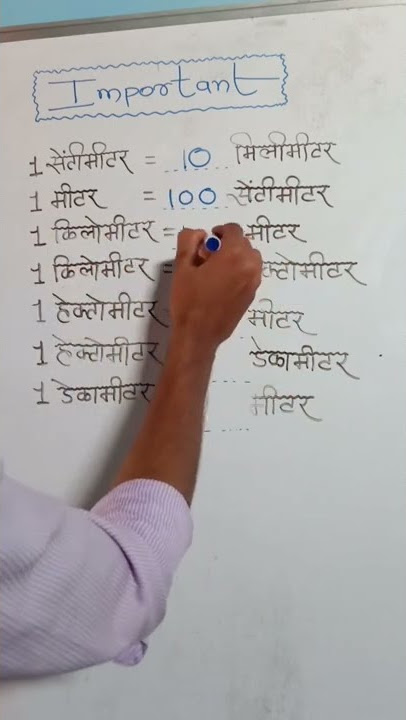 Important
1 सेंटीमीटर = 10 मिलीमीटर
1 मीटर = 100 सेंटीमीटर
1 किलोमीटर = मीटर
1 किलोमीटर =
1 हेक्टोमीटर मीटर
1 हेक्टोमीटर डेकामीटर
1 डेकामीटर मीटर